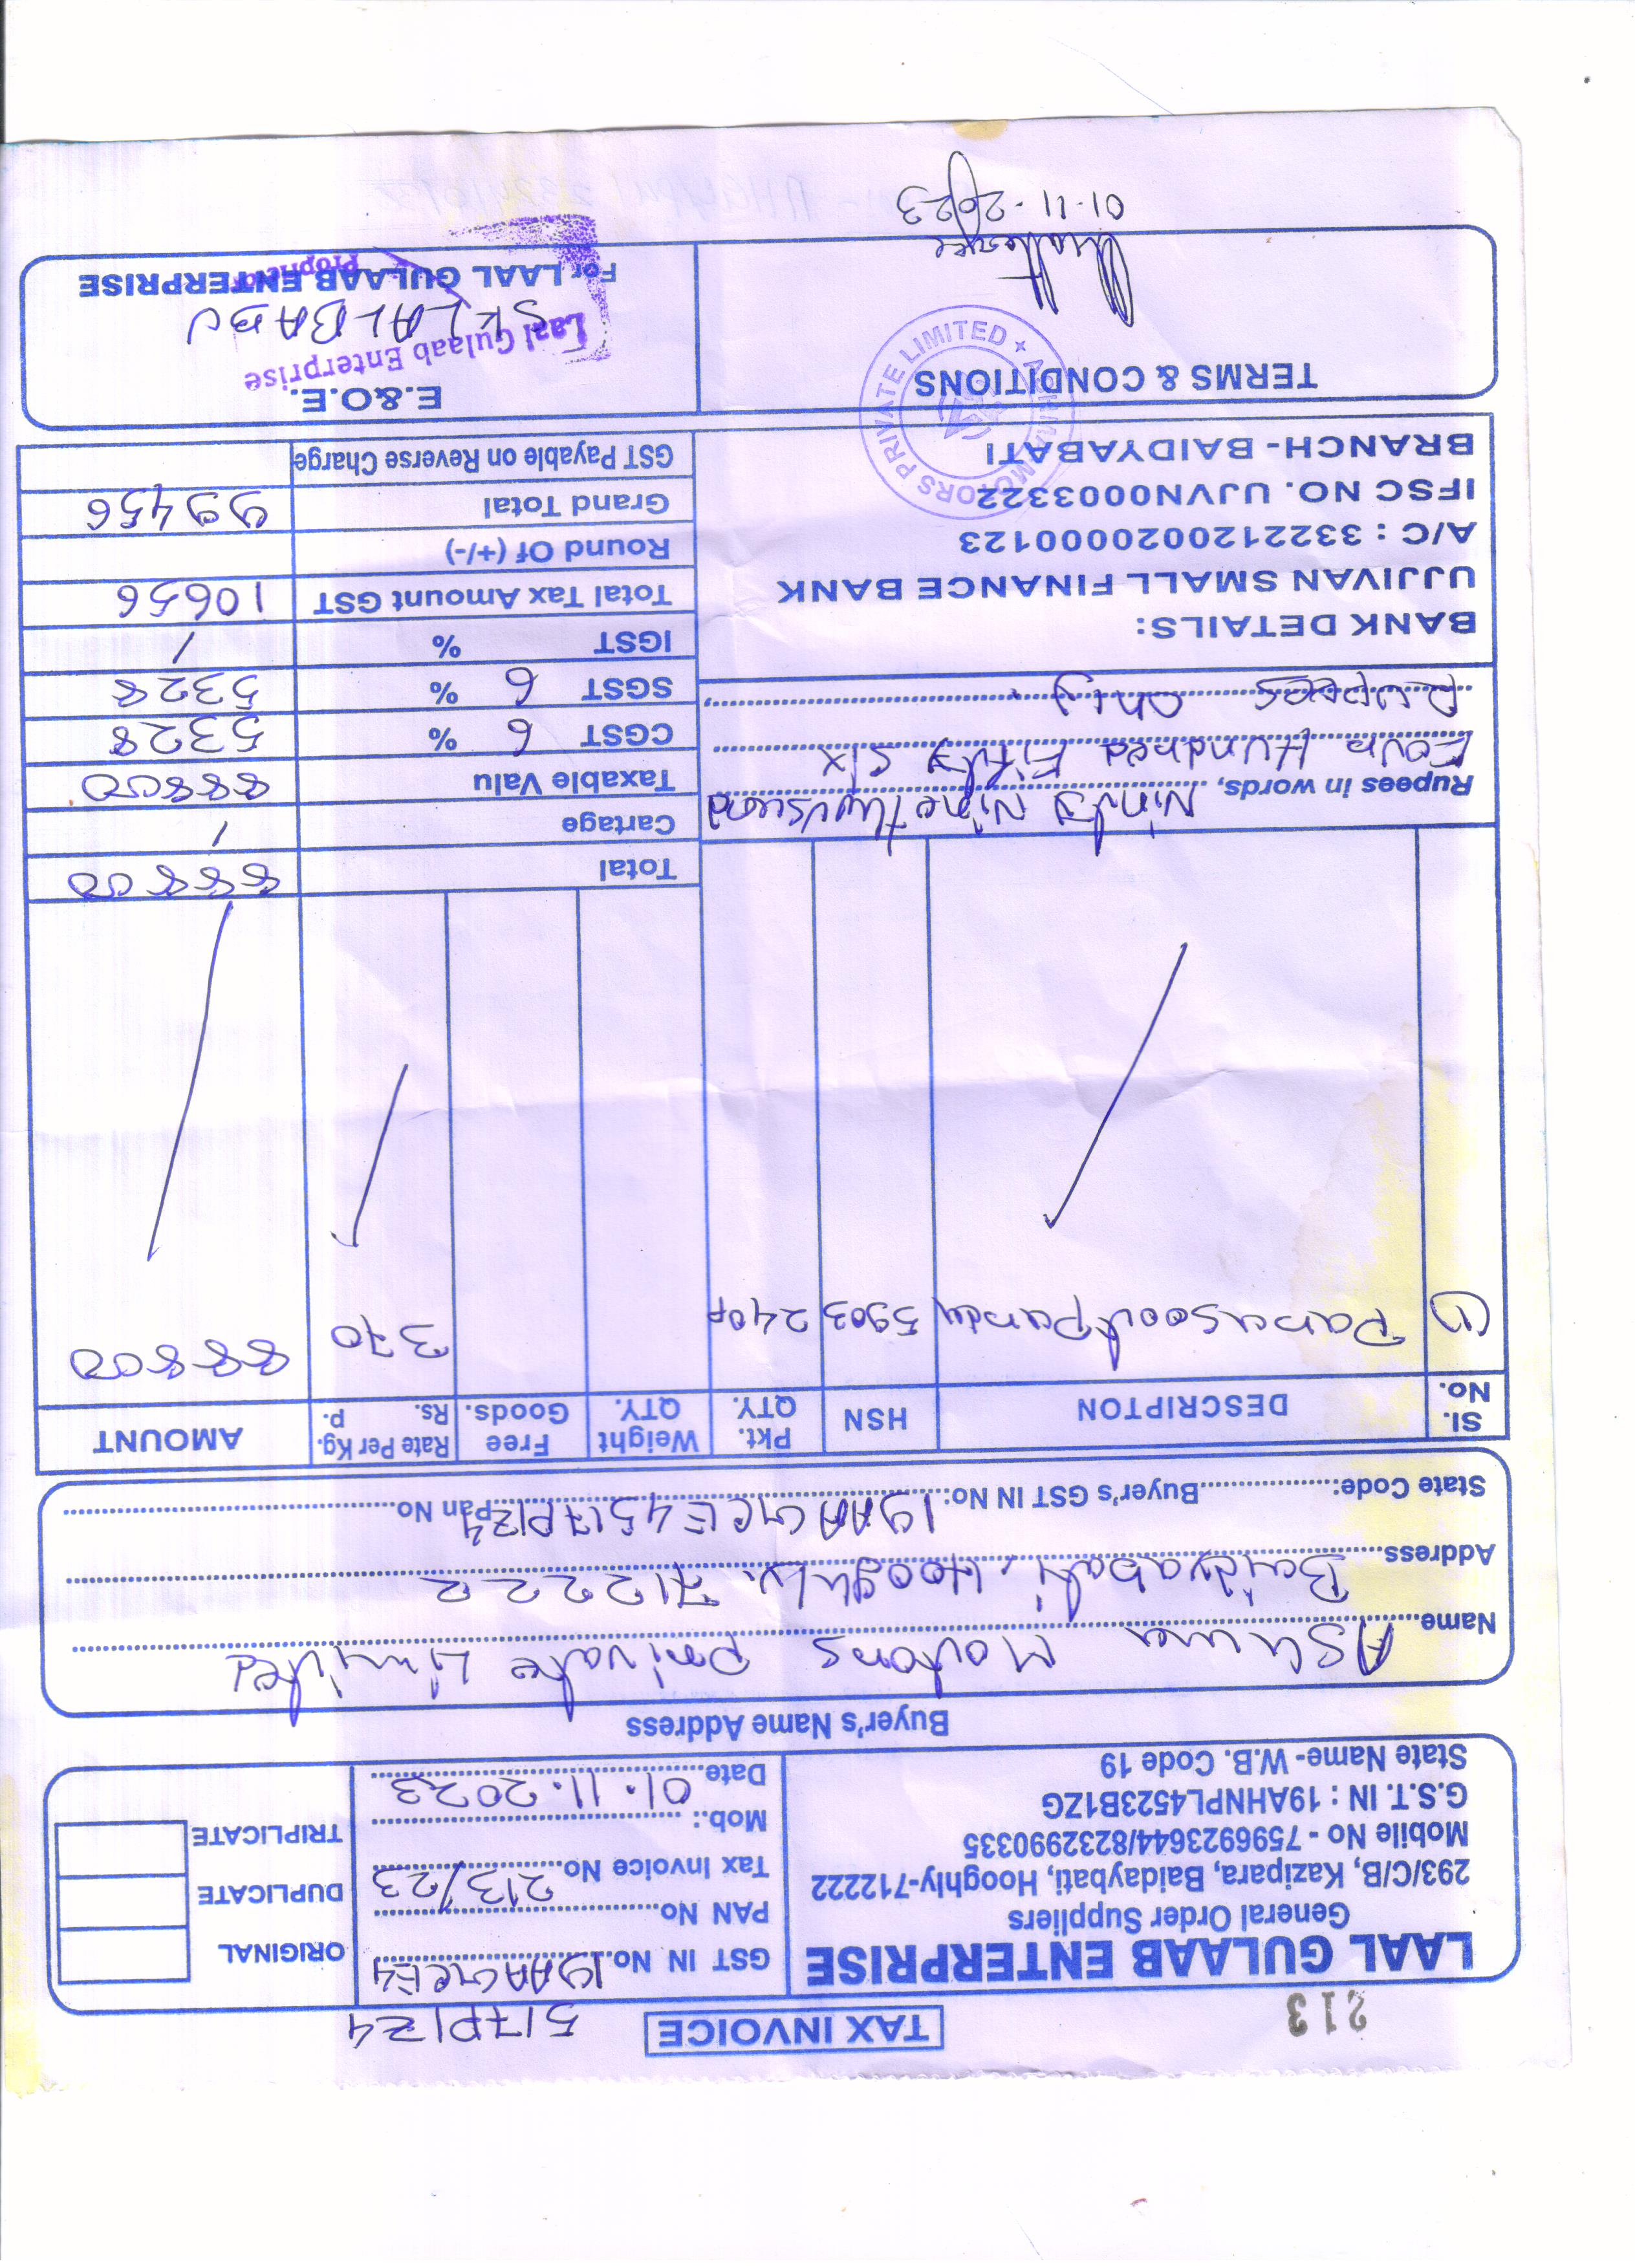 213
TAX INVOICE
517P1Z4
LAAL GULAAB ENTERPRISE
General Order Suppliers
293/C/B, Kazipara, Baidaybati, Hooghly-712222
Mobile No - 7596923644/8232990335
G.S.T. IN : 19AHNPL4523B1ZG
State Name- W.B. Code 19
GST IN No. 19AAGCE4
PAN No.
Tax Invoice No. 213/23
Mob.:
Date. 01.11.2023
ORIGINAL
DUPLICATE
TRIPLICATE
Buyer's Name Address
Name Ashma Motors Private Limited
Address Baidyabati, Hooghly, 712222
State Code: Buyer's GST IN No: 19AAGCE4517P1Z4 Pan No.
Sl. No. DESCRIPTON HSN Pkt. QTY. Weight QTY. Free Goods. Rate Per Kg. Rs. p. AMOUNT
(1) 5903 240p 370 88800
Total 88800
Cartage /
Taxable Valu 88800
CGST 6 % 5328
SGST 6 % 5328
IGST % /
Total Tax Amount GST 10656
Round Of (+/-)
Grand Total 99456
GST Payable on Reverse Charge
Rupees in words, Ninty Nine thousand
Four Hundred Fifty Six
Rupees only.
BANK DETAILS:
UJJIVAN SMALL FINANCE BANK
A/C : 3322120020000123
IFSC NO. UJVN0003322
BRANCH- BAIDYABATI
TERMS & CONDITIONS
ASHMA MOTORS PRIVATE LIMITED
01-11-2023
E.&O.E.
Laal Gulaab Enterprise
SK LALBABU
For LAAL GULAAB ENTERPRISE
Proprietor